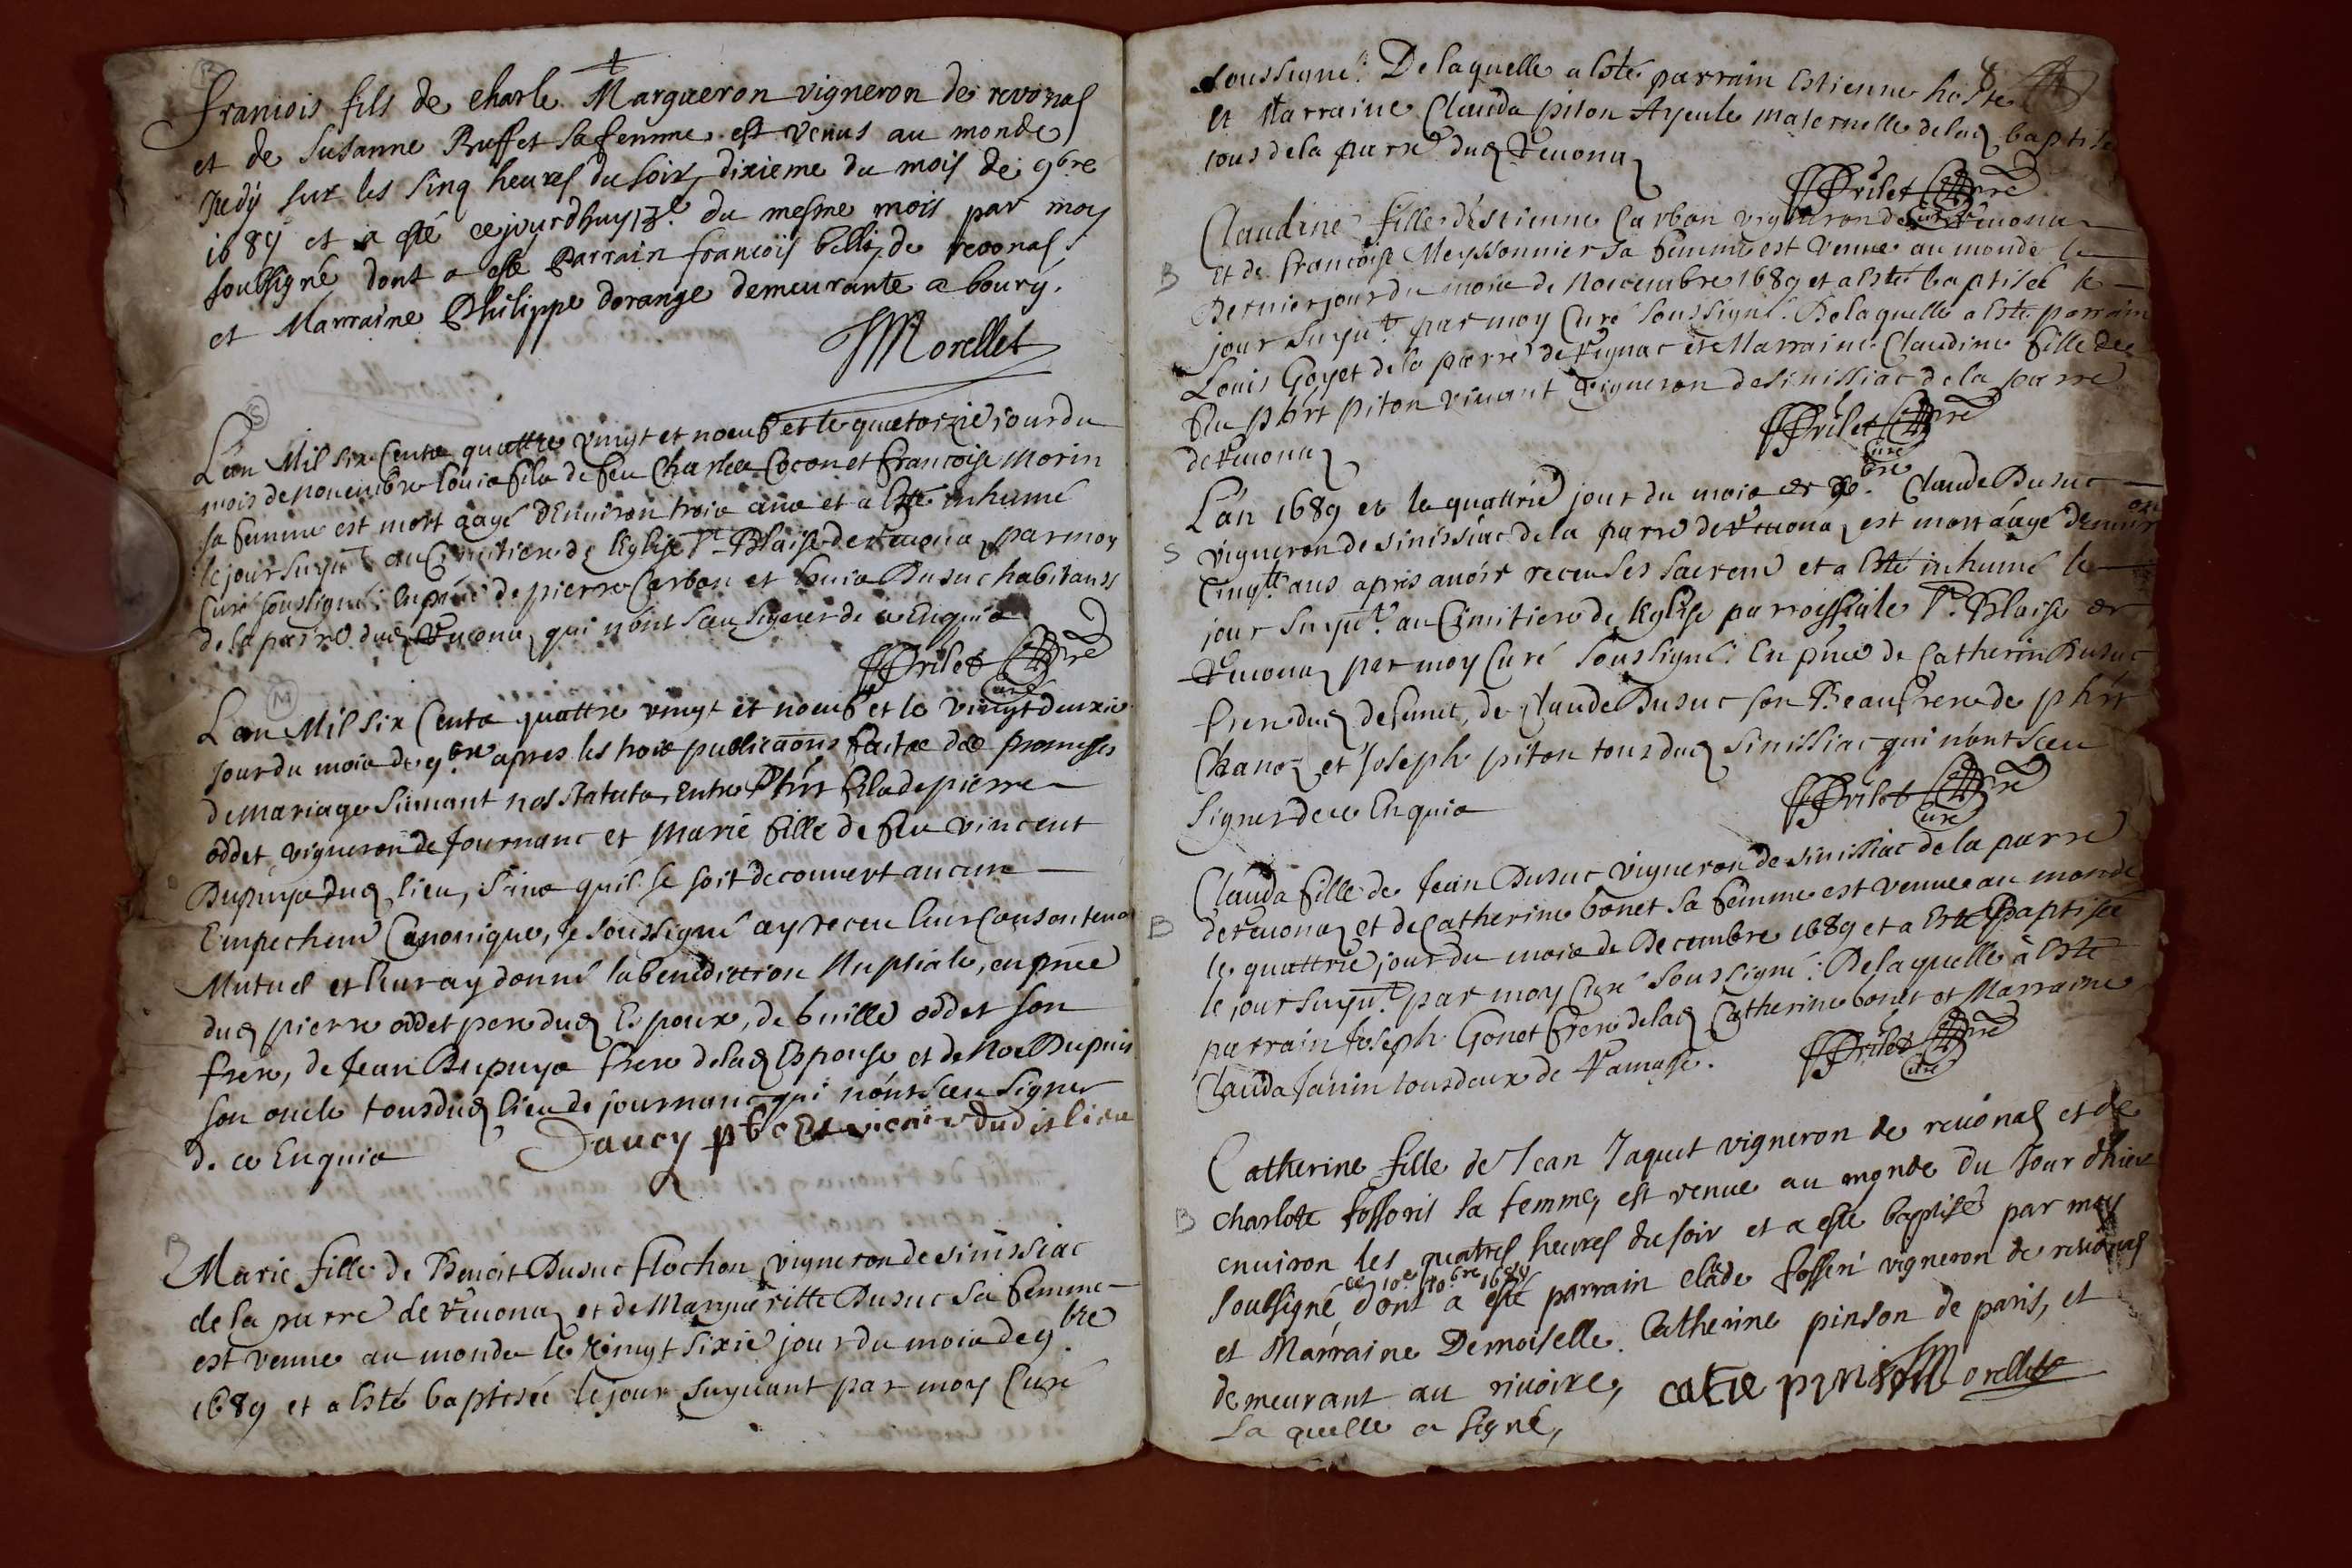 B
francois fils de charle Margueron vigneron de revonas
et de Susanne Buffet sa femme est venus au monde
Judy sur les sinq heures du soir, dixieme du mois de 9bre
1689 et a esté cejourdhuy 13e du mesme mois par moy
soussigné dont a esté Parrain francois belli, de revonas
et Marraine Philippe dorange demeurante a boury.
Morellet
S
L'an Mil six Cents quattre vingt et noeuf et le quatorzie jour du
mois de novembre louis fils de feu Charles Cocon et francoise Morin
sa femme est mort aagé d'Environ trois ans et a Esté inhumé
le jour suyut au Cimitiere de l'Eglise St Blaise de Reuona par moy
Curé soussigné: En pnce de pierre Carbon et louis Dusuc habitans
de la parre dud Reuona qui n'ont sceu signer de ce Enquis
FPrilet pre
Curé
M
L'an Mil six Cents quattre vingt et noeuf et le vingtdeuxie
Jour du mois de 9bre apres les trois publications faites des promesses
de Mariage suiuant nos statuts, Entre Phirt fils de pierre
oddet vigneron de Journanc et Marie fille de feu vincent
Dupuys dud lieu, sans quil se soit decouuert aucun
Empechemt Canonique, Je soussigné ay receu leur Consentemt
Mutuel et leur ay donné la benediction Nuptiale, en pnce
dud pierre oddet pere dud Espoux, de buille oddet son
frere, de Jean Dupuys frere delad Espouse et de Noe Dupuis
son oncle tous dud lieu de journanc qui n'ont sceu signer
de ce Enquis Dancy pbre et vicaire dudit lieu
B
Marie fille de Benoit Dusuc flochon vigneron de sinissiac
de la parre de Reuona et de Margueritte Dusuc sa femme
est venue au monde le vingt sixie jour du mois de 9bre
1689 et a Esté baptisée le jour suyuant par moy Curé
8
soussigné: De laquelle a Esté parrain Estienne hoste
et Marraine Clauda piton Ayeule maternelle delad baptisée
tous de la parre dud Reuona
FPrilet pre
Curé
B
Claudine fille d'Estienne Carbon vigneron de Reuona
et de francoise Meyssonnier sa femme est venue au monde le
Dernier jour du mois de Nouembre 1689 et a Esté baptisée le
jour suyut par moy Curé soussigné. De laquelle a Esté parrain
Louis Goyet de la parre de Rignac et Marraine Claudine fille de
feu phirt piton viuant vigneron de sinissiac de la parre
de Reuona
FPrilet pre
Curé
S
L'an 1689 et le quattrie jour du mois de Xbre Claude Dusuc
vigneron de sinissiac de la parre de Reuona est mort aagé d'enuiron
Cinqte ans apres auoir receu ses sacremt et a Esté inhumé le
jour suyut au Cimitiere de l'Eglise parroissiale St. Blaise de
Reuona par moy Curé soussigné: En pnce de Catherin Dusuc
frere dud defunct, de Claude Dusuc son Beaufrere de phirt
Chanoz et Joseph piton tous dud sinissiac qui n'ont sceu
signer de ce Enquis
FPrilet pre
Curé
B
Clauda fille de Jean Dusuc vigneron de sinissiac de la parre
de Reuona et de Catherine bonet sa femme est venue au monde
le quattrie jour du mois de Decembre 1689 et a Esté Baptisée
le jour suyut par moy Curé soussigné: De laquelle a Esté
parrain Joseph Gonet frere delad Catherine bonet et Marraine
Clauda Janin tous deux de Ramasse.
FPrilet pre
Curé
B
Catherine fille de Jean Jaquet vigneron de reuonas et de
charlotte fosseris sa femme, est venue au monde du Jour d'hier
enuiron les quatres heures du soir et a esté baptisé par moy
soussigné, ce 10e 10bre 1689 dont a esté parrain clade fosseri vigneron de reuonas
et Marraine Demoiselle Catherine pinson de paris, et
demeurant au riuoire, catie pinson Morellet
La quelle a signé,